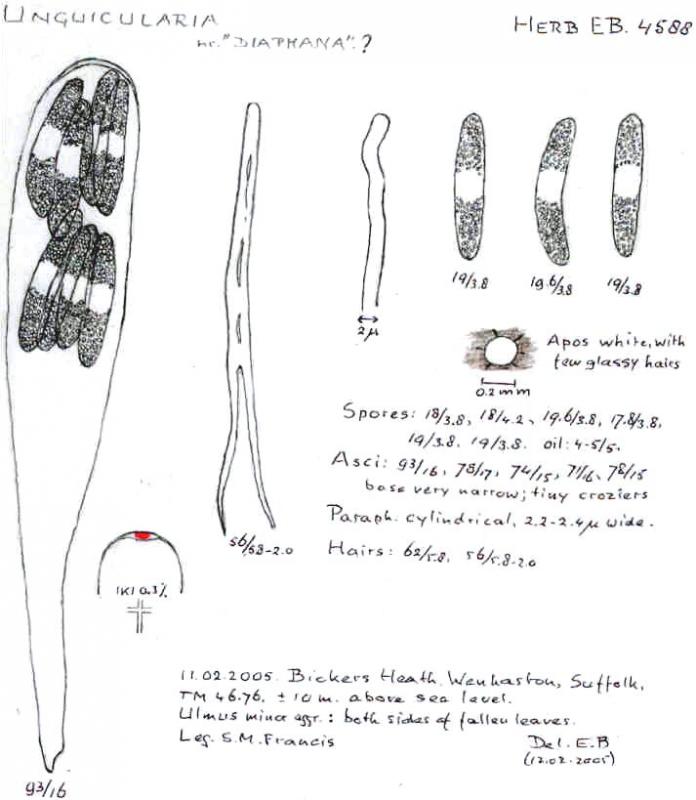 UNGUICULARIA
nr. "DIAPHANA".?
HERB EB. 4588
19/3.8
19.6/3.8
19/3.8
2 µ
Apos white, with
few glassy hairs
0.2 mm
Spores: 18/3.8, 18/4.2, 19.6/3.8, 17.8/3.8,
19/3.8. 19/3.8. oil: 4-5/5.
Asci: 93/16, 75/17, 74/15, 71/16, 78/15
base very narrow; tiny croziers
Paraph. cylindrical, 2.2-2.4µ wide.
Hairs: 62/5.8, 56/5.8-2.0
56/5.8-2.0
IKI 0.3%
11.02.2005. Bickers Heath. Wenhaston, Suffolk,
TM 46.76. ± 10 m. above sea level.
Ulmus minor aggr.: both sides of fallen leaves.
Leg. S.M. Francis
Del. E.B
(12.02.2005)
93/16